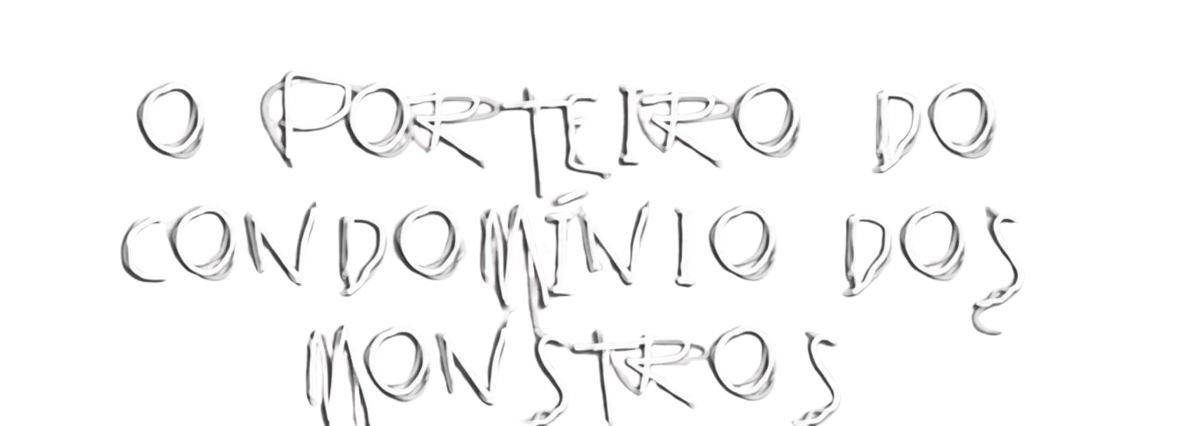 O PORTEIRO DO
CONDOMÍNIO DOS
MONSTROS